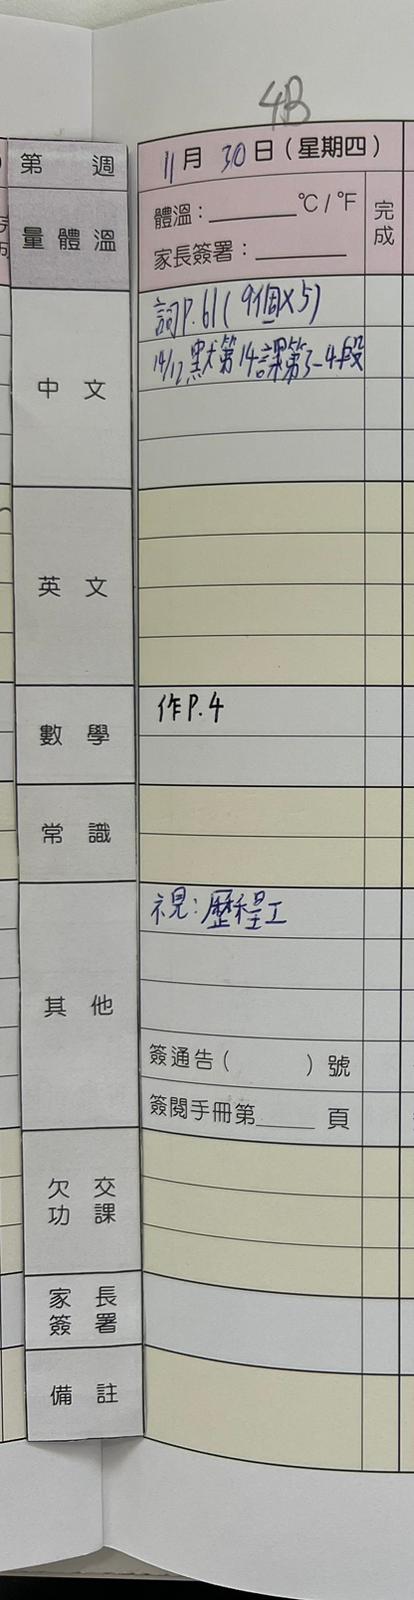 4B
第 週
11月 30日(星期四)
量體溫
體溫:______℃/℉
家長簽署:______
完成
中文
詞P.61(9個X5)
14/12默第14課第3-4段
英文
數學
作P.4
常識
其他
視:歷程工
簽通告( )號
簽閱手冊第____頁
欠交功課
家長簽署
備註